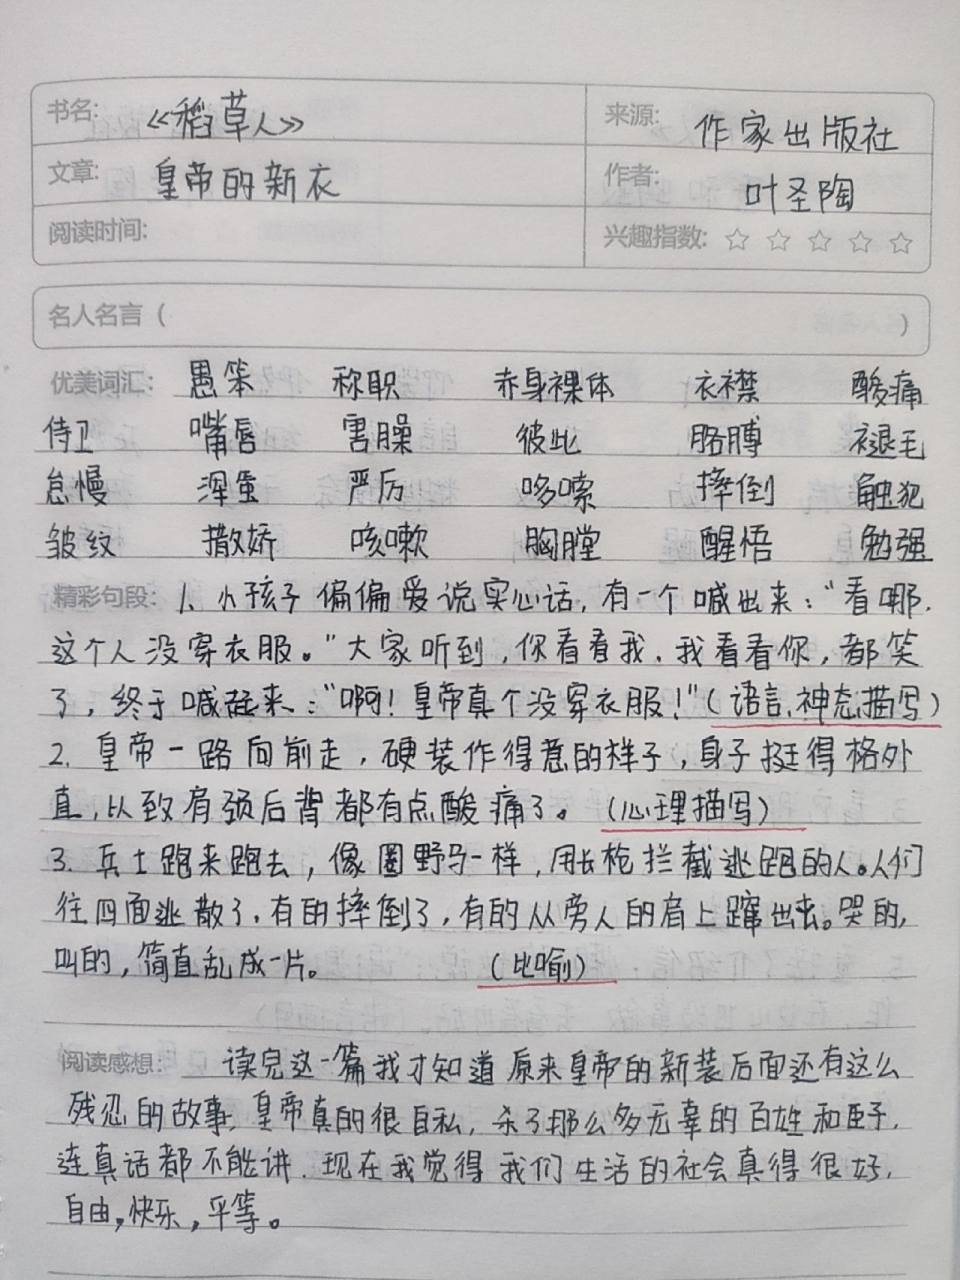 书名: 《稻草人》 来源: 作家出版社
文章: 皇帝的新衣 作者: 叶圣陶
阅读时间: 兴趣指数: ☆ ☆ ☆ ☆ ☆
名人名言（ ）
优美词汇: 愚笨 称职 赤身裸体 衣襟 酸痛
侍卫 嘴唇 害臊 彼此 胳膊 褪毛
怠慢 浑蛋 严厉 哆嗦 摔倒 触犯
皱纹 撒娇 咳嗽 胸膛 醒悟 勉强
精彩句段: 1、小孩子偏偏爱说实心话，有一个喊出来：“看哪，
这个人没穿衣服。”大家听到，你看看我，我看看你，都笑
了，终于喊起来：“啊！皇帝真个没穿衣服！”（语言、神态描写）
2. 皇帝一路向前走，硬装作得意的样子，身子挺得格外
直，以致肩颈后背都有点酸痛了。（心理描写）
3. 兵士跑来跑去，像圈野马一样，用长枪拦截逃跑的人。人们
往四面逃散了，有的摔倒了，有的从旁人的肩上蹿出去。哭的，
叫的，简直乱成一片。（比喻）
阅读感想: 读完这一篇我才知道原来皇帝的新装后面还有这么
残忍的故事，皇帝真的很自私，杀了那么多无辜的百姓和臣子，
连真话都不能讲．现在我觉得我们生活的社会真得很好，
自由，快乐，平等。